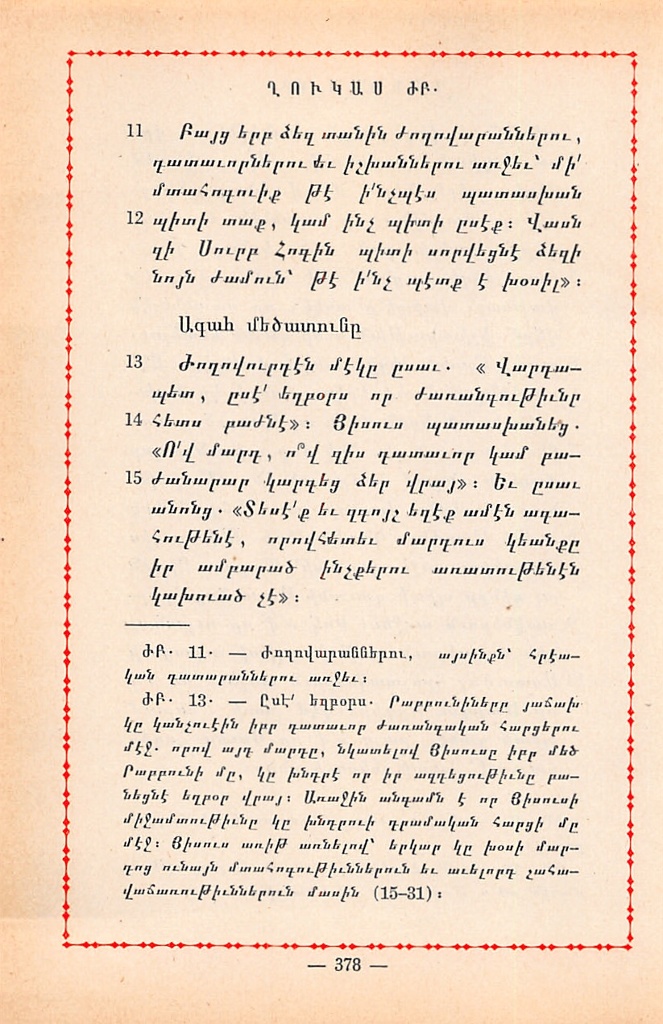 ՂՈՒԿԱՍ ԺԲ.
11 Բայց երբ ձեզ տանին ժողովարաններու,
դատաւորներու եւ իշխաններու առջեւ՝ մի՛
մտահոգուիք թէ ի՛նչպէս պատասխան
12 պիտի տաք, կամ ինչ պիտի ըսէք։ Վասն
զի Սուրբ Հոգին պիտի սորվեցնէ ձեզի
նոյն ժամուն՝ թէ ի՛նչ պէտք է խօսիլ»։
Ագահ մեծատունը
13 Ժողովուրդէն մէկը ըսաւ. « Վարդա—
պետ, ըսէ՛ եղբօրս որ ժառանգութիւնը
14 հետս բաժնէ»։ Յիսուս պատասխանեց.
«Ո՛վ մարդ, ո՞վ զիս դատաւոր կամ բա—
15 ժանարար կարգեց ձեր վրայ»։ Եւ ըսաւ
անոնց. «Տեսէ՛ք եւ զգոյշ եղէք ամէն ագա—
հութենէ, որովհետեւ մարդուս կեանքը
իր ամբարած ինչքերու առատութենէն
կախուած չէ»։
ԺԲ. 11. — Ժողովարաններու, այսինքն՝ հրէա—
կան դատարաններու առջեւ։
ԺԲ. 13. — Ըսէ՛ եղբօրս. Րաբբունիները յաճախ
կը կանչուէին իբր դատաւոր ժառանգական հարցերու
մէջ. որով այդ մարդը, նկատելով Յիսուսը իբր մեծ
Րաբբունի մը, կը խնդրէ որ իր ազդեցութիւնը բա—
նեցնէ եղբօր վրայ։ Առաջին անգամն է որ Յիսուսի
միջամտութիւնը կը խնդրուի դրամական հարցի մը
մէջ։ Յիսուս առիթ առնելով՝ երկար կը խօսի մար—
դոց ունայն մտահոգութիւններուն եւ աւելորդ շահա—
վաճառութիւններուն մասին (15–31)։
— 378 —